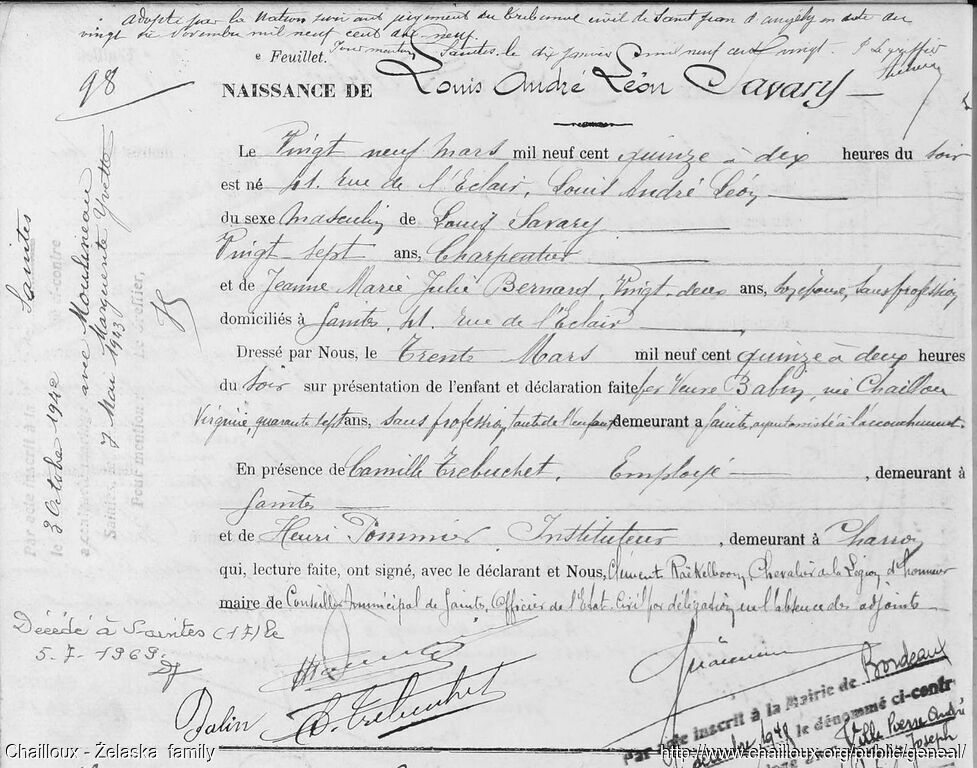 adopté par la Nation suivant jugement du Tribunal civil de Saint Jean d'angély en date du
vingt six Novembre mil neuf cent dix neuf.
e Feuillet. Pour mention Saintes le dix Janvier mil neuf cent vingt.
98
NAISSANCE DE Louis André Léon Savary
Le Vingt neuf Mars mil neuf cent quinze à dix heures du soir
est né 41. rue de l'Eclair, Louis André Léon
du sexe masculin de Louis Savary
Vingt-sept ans, Charpentier
et de Jeanne Marie Julie Bernard, Vingt-deux ans, son épouse, sans profession
domiciliés à Saintes, 41. rue de l'Eclair
Dressé par Nous, le Trente Mars mil neuf cent quinze à deux heures
du soir sur présentation de l'enfant et déclaration faite par Veuve Babin, née Chaillou
Virginie, quarante sept ans, sans profession, tante de l'enfant demeurant à Saintes, ayant assisté à l'accouchement.
En présence de Camille Trebuchet, Employé, demeurant à
Saintes
et de Henri Pommier, Instituteur, demeurant à Charron
qui, lecture faite, ont signé, avec le déclarant et Nous, Clément Raëkelboom, Chevalier de la Légion d'honneur
maire de Conseiller Municipal de Saintes, Officier de l'Etat-Civil par délégation en l'absence des adjoints
Saintes
3 Octobre 1942
avec Moulineau
Marguerite Yvette
7 Mai 1943
Décédé à Saintes (17) le
5.7.1969.
Babin
C. Trebuchet
Par acte inscrit à la Mairie de Bordeaux
1948 le dénommé ci-contre
Pierre André
Joseph
Chailloux - Żelaska family
http://www.chailloux.org/public/geneal/